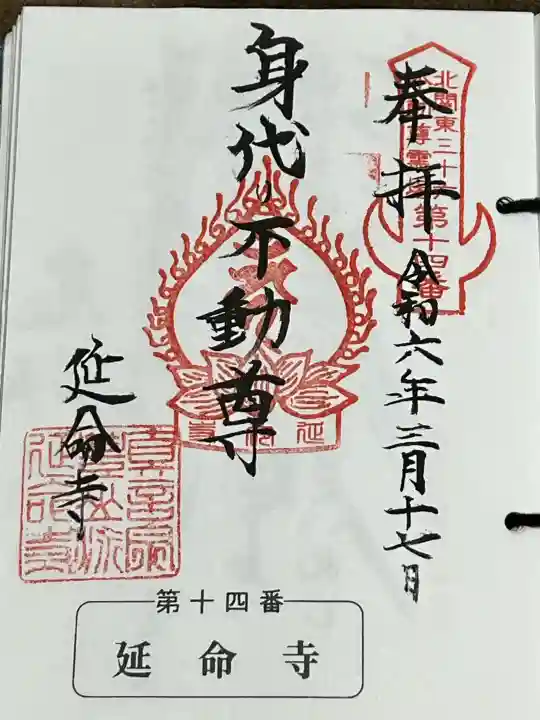 奉拝
令和六年三月十七日
北関東三十六
不動尊霊場第十四番
身代り不動尊
延命寺
延命寺
第十四番
延命寺